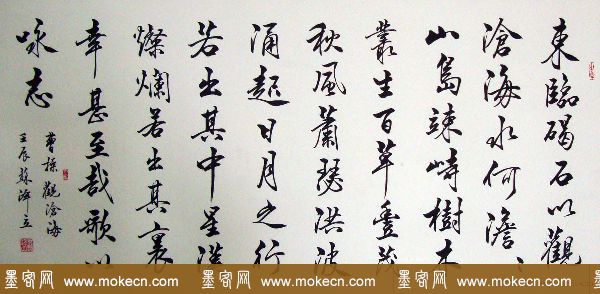 東臨碣石以觀
滄海水何澹〻
山島竦峙樹木
叢生百草豐茂
秋風蕭瑟洪波
涌起日月之行
若出其中星漢
燦爛若出其裏
幸甚至哉歌以
咏志
曹操觀滄海
壬辰蘇立
墨客网 www.mokecn.com 墨客网 www.mokecn.com 墨客网 www.mokecn.com 墨客网 www.mokecn.com